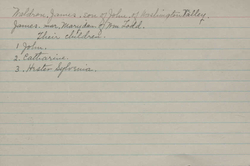 Waldron, James, son of John, of Wellington Valley.
James mar. Mary dau. of Wm. Todd.
Their children.
1 John.
2. Catharine.
3. Hester Sylvonia.